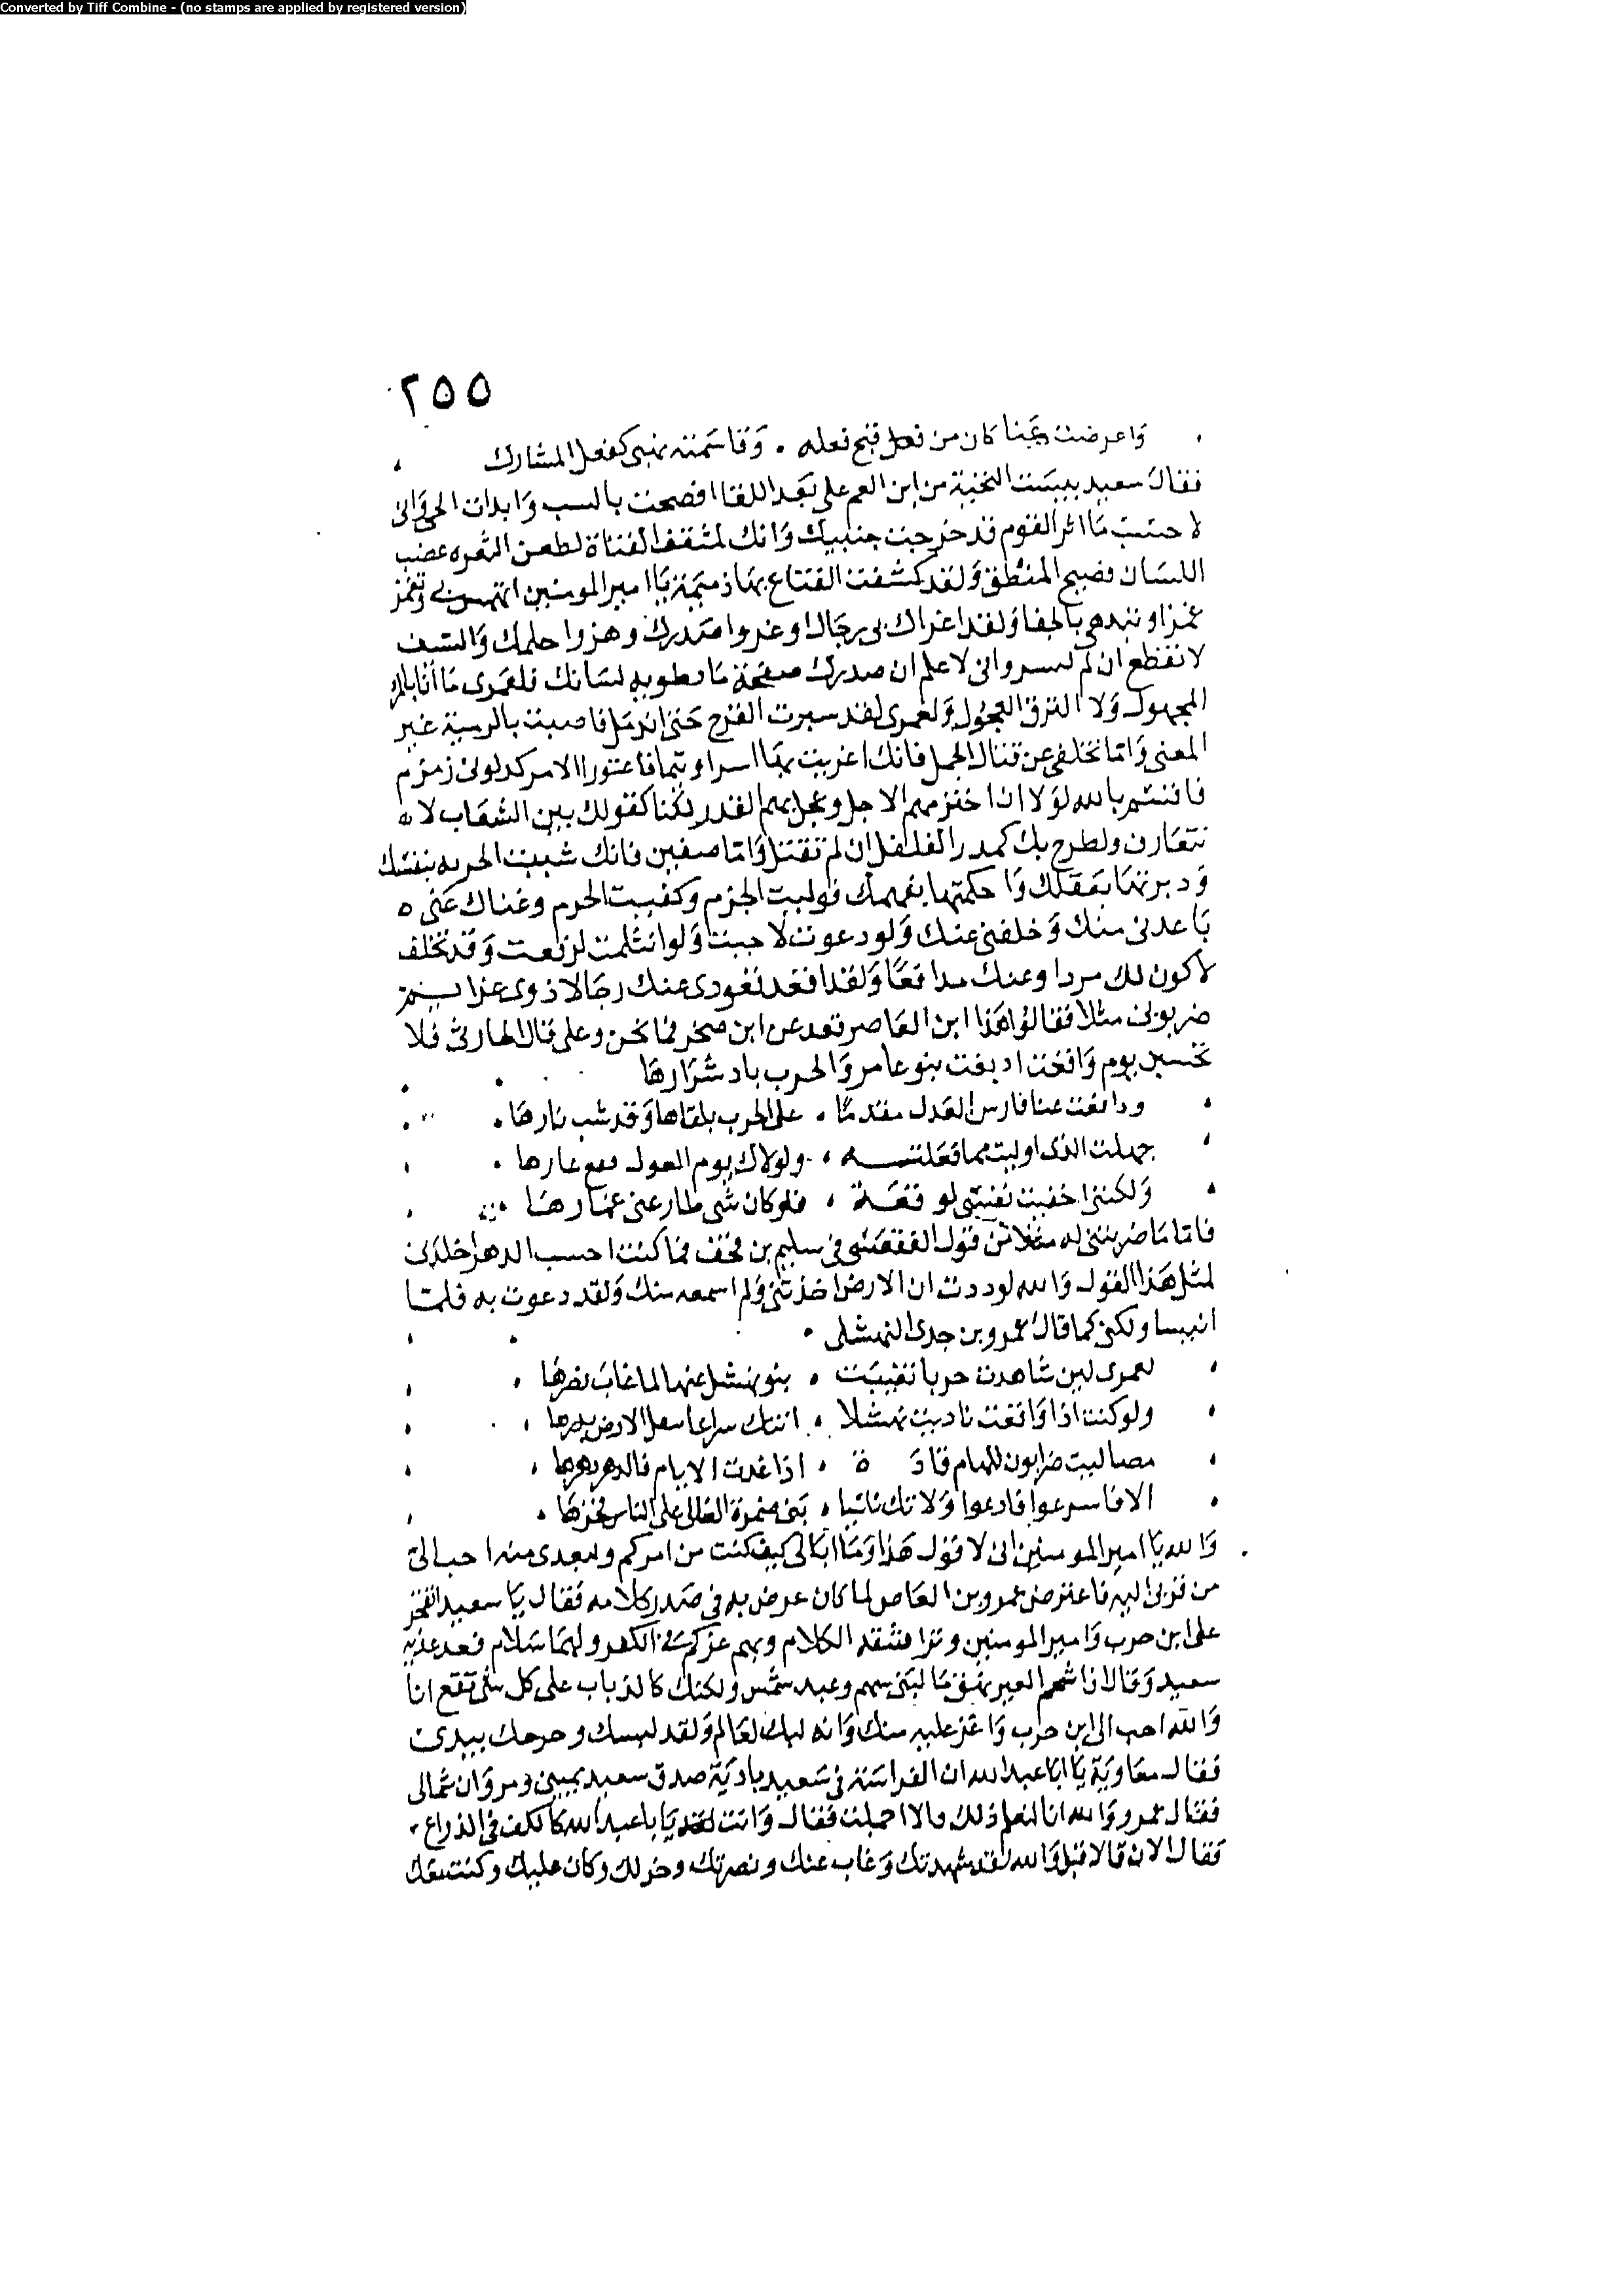 Converted by Tiff Combine - (no stamps are applied by registered version)
٢٥٥
واعرضت عما كان من فعل قبح فعله . وقاسمته نهبي كفعل المشارك
فقال سعيد بيست التحية من ابن العم على بعد اللقا افصحت بالسب وابدات الحي واني
لا حسب ما اثر القوم قد خرجت جنبيك وانك لمثقف القناة لطعن الثغره عضب
اللسان فصيح المنطق ولقد كشفت القناع بها ذميمة يا امير المومنين اتتهموني وتغمز
غمزا وتبدهي بالجفا ولقد اغراك بي رجالا وغروا صدرك وهزوا حلمك والسيف
لا تقطع ان لم واني لا علم ان صدرك صفحة ما يطويه لسانك فلعمرى ما أنا بالمر
المجهول ولا النزق العجول ولعمرى لقد سبرت القرح حتى اندمل فاصبت بالرمية غير
المعنى واما تخلفي عن قتال الجمل فانك اغريت بها اسرا وتيما فاعتورا الامر كدلوي زمزم
فاقسم بالله لولا اذا اخترمهم الاجل وعجل بهم القدر لكنا كقولك بين الشقاب لا
تتقارن ولطرح بك كمدر الفلفل ان لم تقتل واما صفين فانك شببت الحرب بنفسك
ودبرتها بعقلك واحكمتها بفهمك فوليت الجزم وكفيت الحرم وغناك عنى
باعدني منك وخلفني عنك ولو دعوت لاجبت ولو انثلمت لرقعت وقد تخلف
لاكون لك مردا وعنك مدافعا ولقد افعد تعودى عنك رجالا ذوي عذا
ضربوني مثلا فقالوا هذا ابن العاص قعد عن ابن صخر فما نحن وعلى قال الحارثي فلا
تحسبن يوم واقفت اد بقت بنو عامر والحرب باد شرارها
ودافعت عنا فارس العدل مقدما . على الحرب يلقاها وقد شب نارها .
جهلت الذى اوليت مما فعلته ، ولولاك يوم العول عارها .
ولكننا خفيت نفيتى لو قفة ، فلو كان شي طار عني غمارها
فاما ما ضربتني له مثلا من قول الفقعسي في سليم بن مخنف فما كنت احسب الدهر خلدني
لمثل هذا القول والله لوددت ان الارض اخذتني ولم اسمعه منك ولقد دعوت به فلما
انبيسا ولكن كما قال عمرو بن جدى النهشلى .
لعمرى لين شاهدت حربا تغيبت . بنو نهشل عنها لما غاب نصرها .
ولو كنت اذا واقفت ناديت نهشلا . اتتك سراعا الارض .
مصاليت ضرابون للهام قادة . اذا غدت الايام فالدهر دهرها .
الا فاسرعوا فادعوا ولا تك نائيا . بني ضمرة الغالى على الناس فخرها .
والله يا امير المومنين اني لا قول هذا وما ابالى كيف كنت من امركم وبعدى منه احب الي
من قربي اليه فاعترض عمرو بن العاص لما كان عرض به في صدر كلامه فقال يا سعيد اتفخر
على ابن حرب وامير المومنين وتزا فشقه الكلام وبهم عزكم في الكفر ولهما سلام فعد عذيه
سعيد وقال اذا شحم العير نهق ما لبني سهم وعبد شمس ولكنك كالذباب على كل شي تقع انا
والله احب الى ابن حرب واعز عليه منك وانه لعالم ولقد وجرحك بيدى
فقال معاوية يا ابا عبد الله ان الفراسة في سعيد بادية صدق سعيد يميني ومروان شمالى
فقال عمرو والله انا لنعلم ذلك والا احملت فقال وانت لقد يا با عبد الله كالكف في الذراع .
فقال الان قالا قبل والله لقد شهدتك وغاب عنك ونصرتك وخذلك وكان عليك وكنت معك